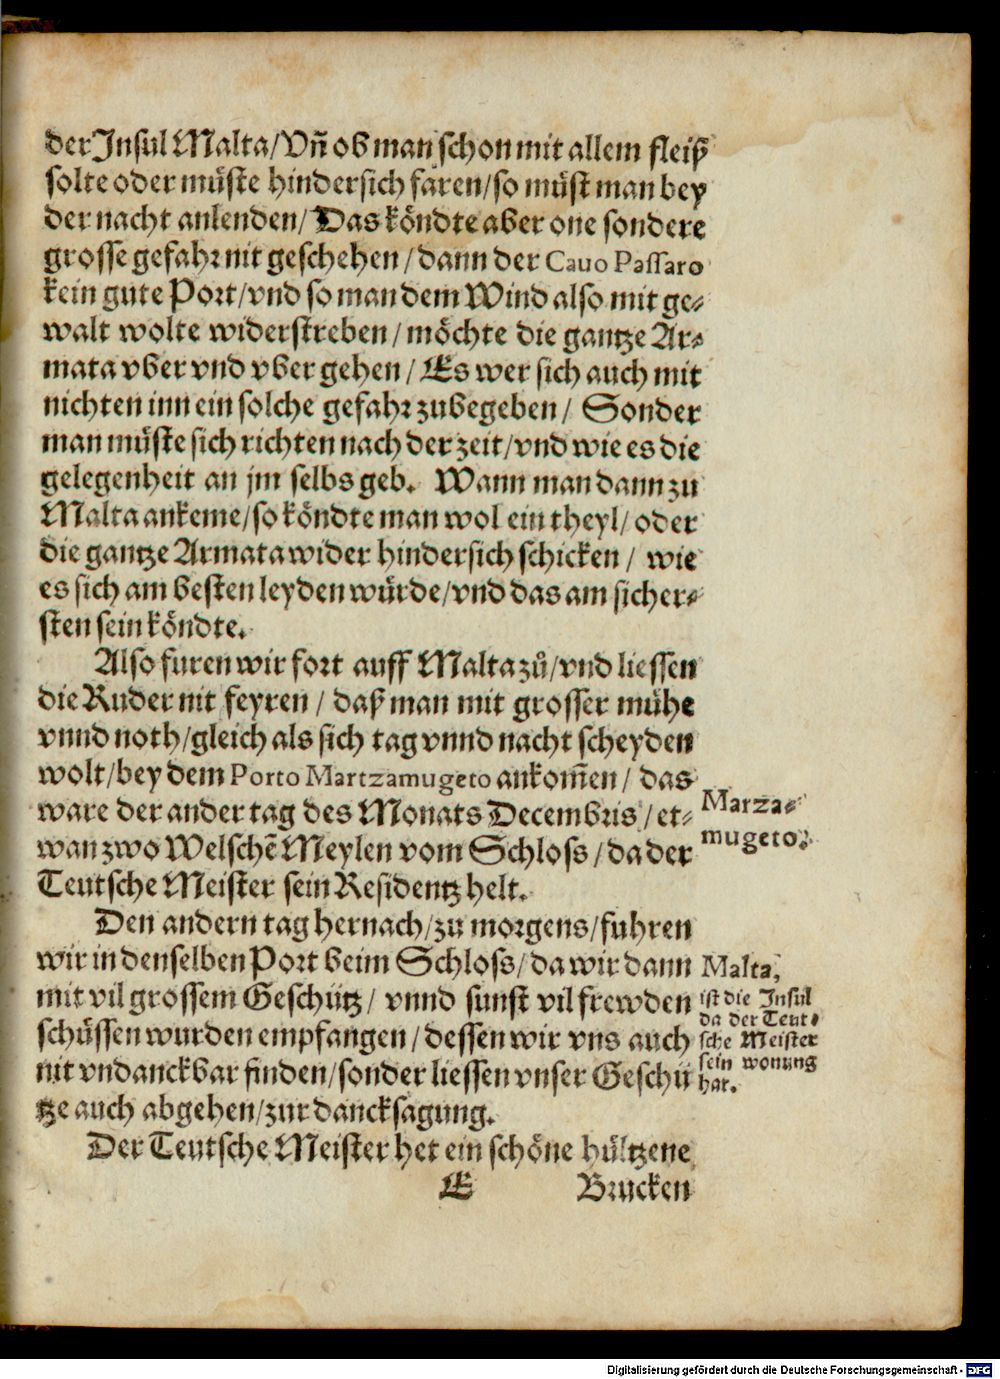 der Insul Malta/Vñ ob man schon mit allem fleiß
solte oder müste hindersich faren/so müst man bey
der nacht anlenden/Das köndte aber one sondere
grosse gefahr nit geschehen/dann der Cauo Passaro
kein gute Port/vnd so man dem Wind also mit ge⸗
walt wolte widerstreben/möchte die gantze Ar⸗
mata vber vnd vber gehen/Es wer sich auch mit
nichten inn ein solche gefahr zubegeben/Sonder
man müste sich richten nach der zeit/vnd wie es die
gelegenheit an jm selbs geb. Wann man dann zu
Malta ankeme/so köndte man wol ein theyl/oder
die gantze Armata wider hindersich schicken/wie
es sich am besten leyden würde/vnd das am sicher⸗
sten sein köndte.
Also furen wir fort auff Malta zů/vnd liessen
die Ruder nit feyren/daß man mit grosser mühe
vnnd noth/gleich als sich tag vnnd nacht scheyden
wolt/bey dem Porto Martzamugeto ankom̃en/das
ware der ander tag des Monats Decembris/et⸗
wan zwo Welschẽ Meylen vom Schloss/da der
Teutsche Meister sein Residentz helt.
Marza⸗
mugeto.
Den andern tag hernach/zu morgens/fuhren
wir in denselben Port beim Schloss/da wir dann
mit vil grossem Geschütz/vnnd sunst vil frewden
schüssen wurden empfangen/dessen wir vns auch
nit vndanckbar finden/sonder liessen vnser Geschü
tze auch abgehen/zur dancksagung.
Malta,
ist die Insul
da der Teut⸗
sche Meister
sein wonung
hat.
Der Teutsche Meister het ein schöne hültzene
E Brucken
Digitalisierung gefördert durch die Deutsche Forschungsgemeinschaft - DFG